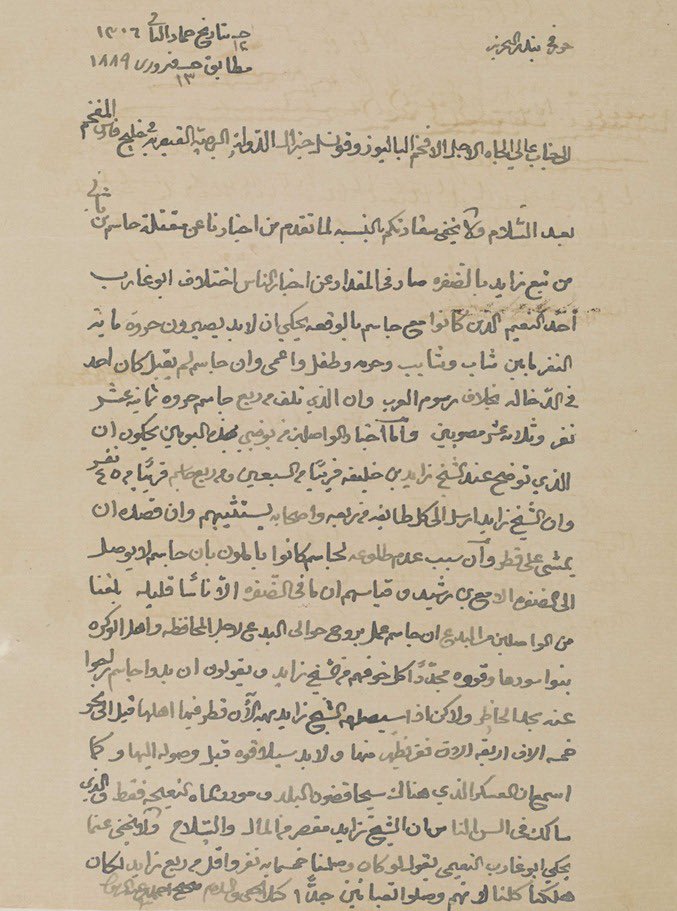 حرر في بندر البحرين
في ١٢ بتاريخ جماد الثاني ١٣٠٦
مطابق ١٣ فروري ١٨٨٩
الاجناب عالي الجاه الاجل الافخم الباليوز وقونسل جنرال الدولة البهية القيصرية في خليج فارس المفخم
بعد السلام ولا يخفى سعادتكم بالنسبه لما تقدم من اخبارنا عن مقتلة جاسم بن ثاني
من تبع زايد بالضفره صار في المقدار عن اخبار الناس اختلاف ابو غارب
أحد النعيم الذين كانوا مع جاسم بالوقعه يحكي ان لابد يصيرون حدود مايه
النفر مابين شاب وشايب وحرمه وطفل واعمى وان جاسم لم يقبل كان احد
في الدخاله بخلاف رسوم العرب وان الذي تلف من ربع جاسم حدود ثمانية عشر
نفر وثلاثة عشر مصوبين وأما أخبار الواصلين من بوظبي بهذه اليومين يحكون ان
الذي توضح عند الشيخ زايد بن خليفه قريبًا من السبعين ومن ربع جاسم قريبًا من ٤٥ نفر
وان الشيخ زايد ارسل الى كل طائفه من ربعه واصحابه يستثيبهم وان قصده ان
يمشي على قطر وأن سبب عدم طلوعه لجاسم كانوا يأملون بان جاسم لا يوصل
الى الضفره الا مع بن رشيد وقياسهم ان ما في الضفره الا ناسًا قليله بلغنا
من الواصلين من البدع ان جاسم عمل بروج حوالي البدع لاجل المحافظه وأهل الوكره
بنوا سورها وقووه مجددًا كل خوفهم من الشيخ زايد ويقولون ان بدوا جاسم
عنه بجد الخاطر ولاكن اذا سيصلهم الشيخ زايد بهذه الأن قطر فيها اهلها قبل الى نحو
خمسه الاف اربعة الاف نفر تظهر منها ولابد سيلاقوه قبل وصوله اليها وكما
اسمع ان العسكر الذي هناك سيحافضون البلد ومورد ماه النعيجه فقط والذي
سالك في السن الناس ان الشيخ زايد مقصر من المال والسلاح ولا يخفى عنما
يحكي ابو غارب النعيمي يقول لو كان وصلنا خمسمايه نفر واقل من ربع زايد لكان
هلكنا كلنا لانهم وصلوا تعبانين جدًا كذا يحكي والسلام